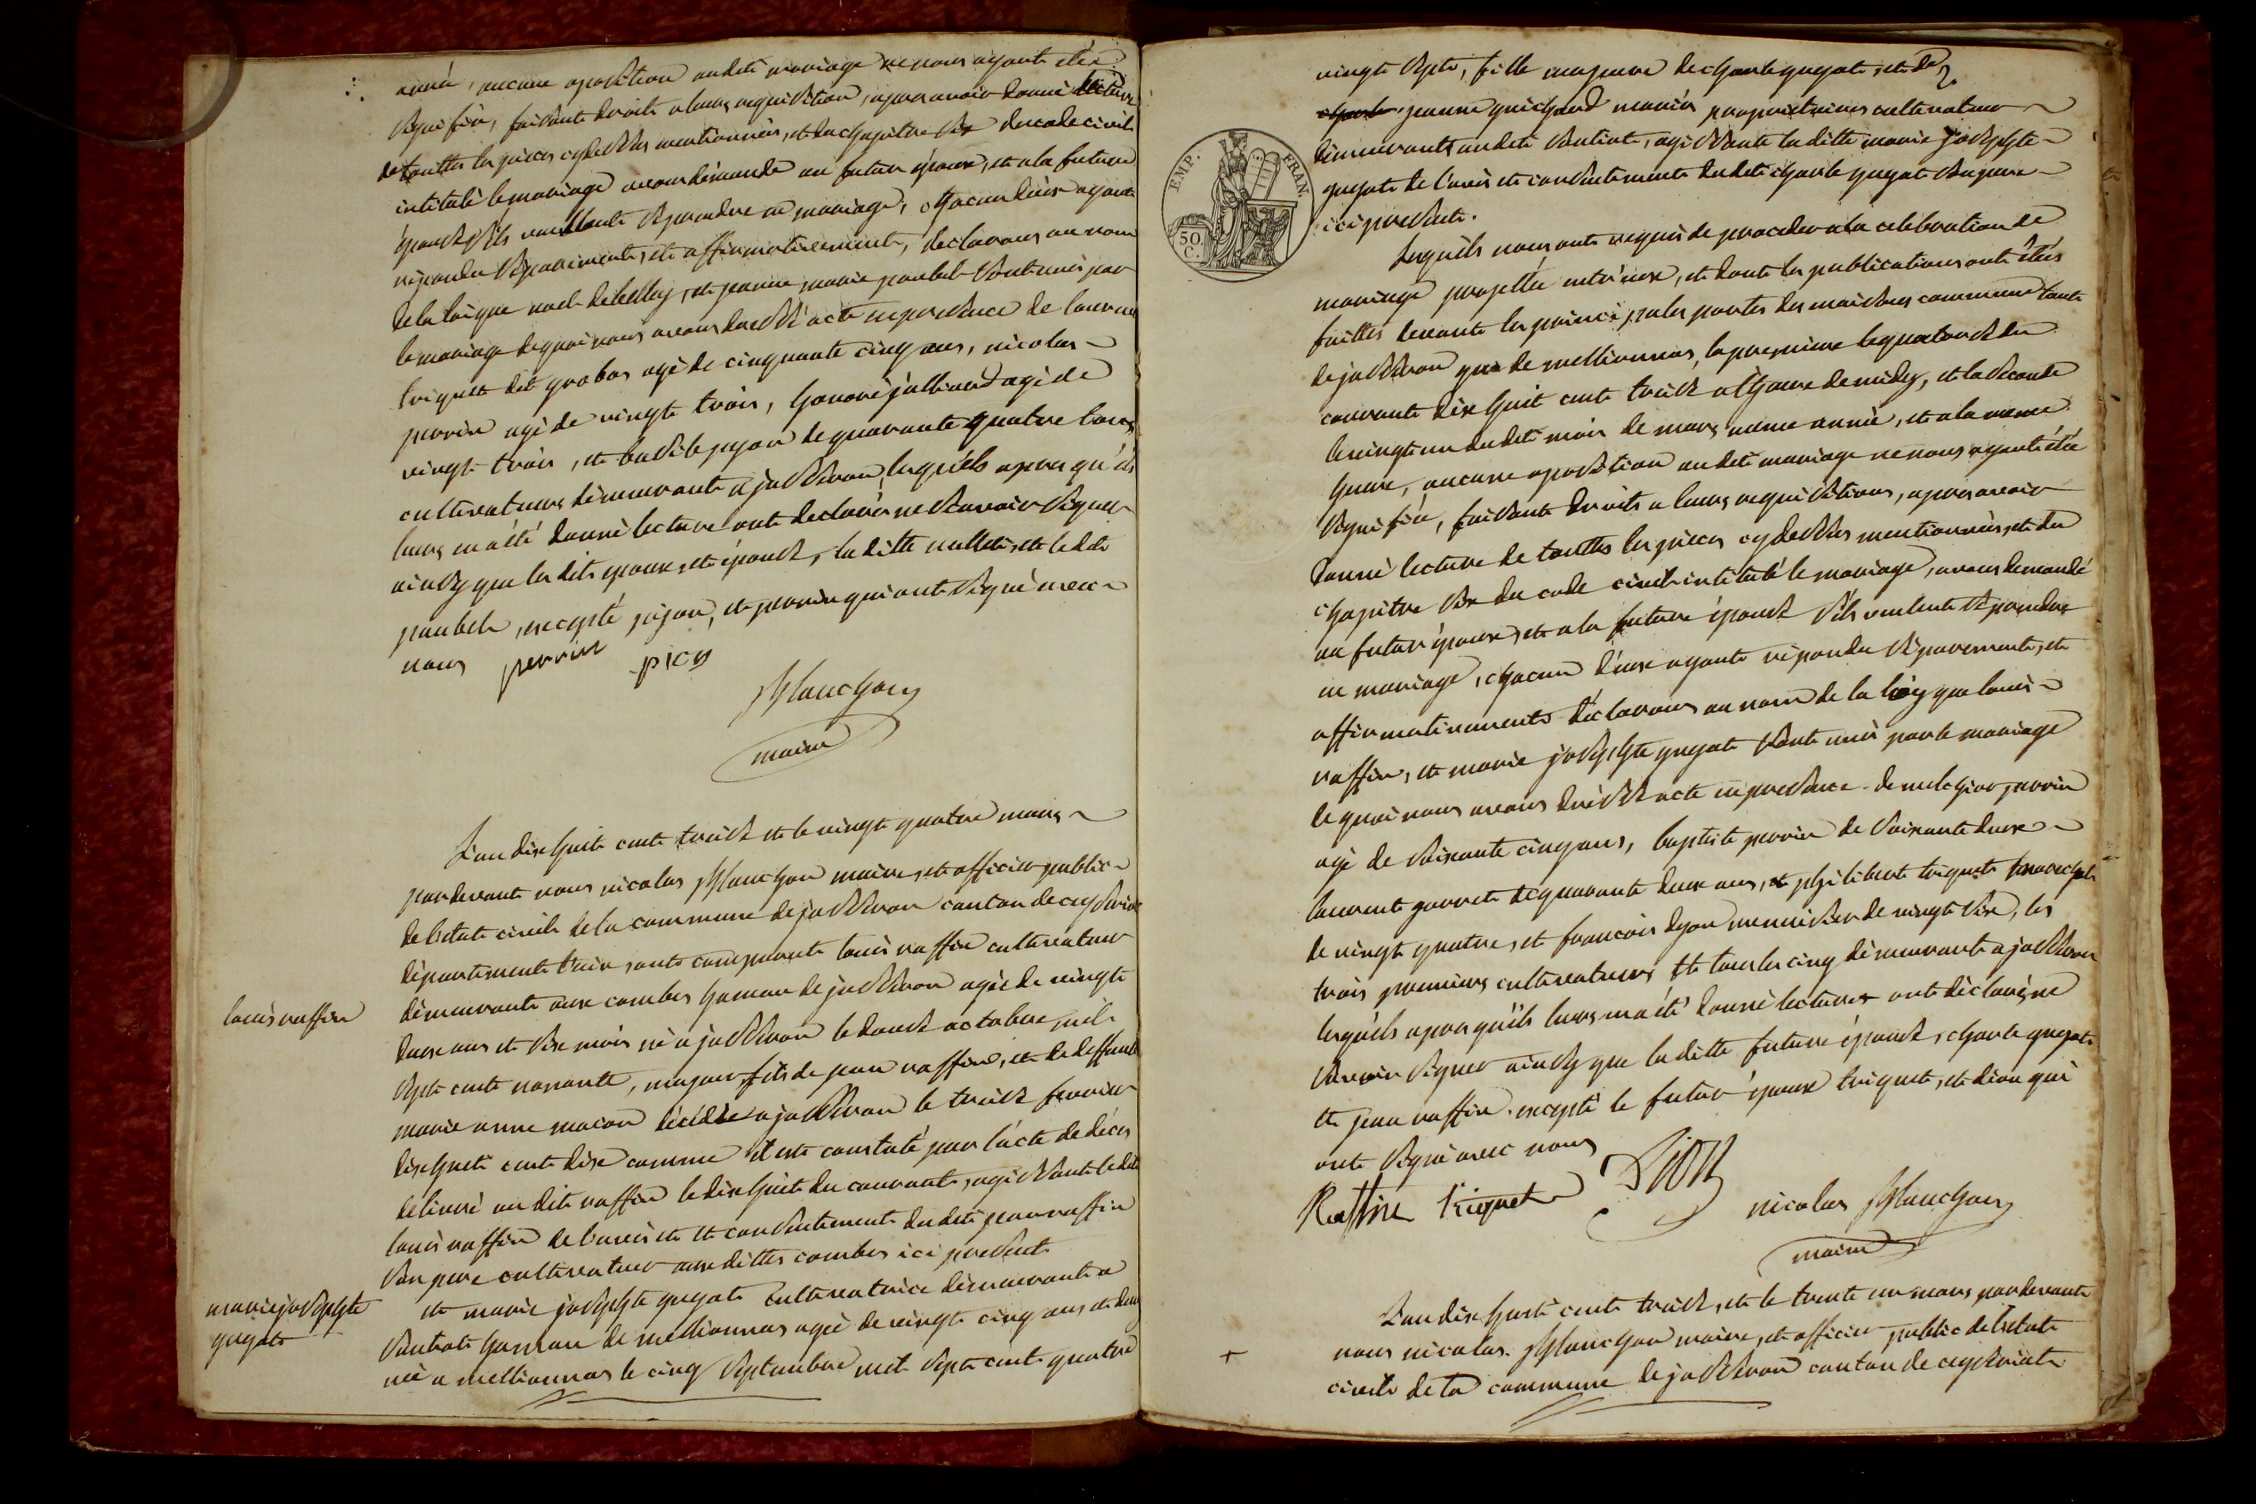 année, aucune oposition audit mariage ne nous ayant étée
signifiée, faisante droite a leurs requisition, apres avoir donné lecture
de touttes les pieces cydessus mentionnées, et du chapitre six du code civil
intitulé le mariage avons demandé au futur époux, et a la future
épouse s'ils veullent se prendre en mariage, chacun d'eux ayant
répondu séparément, et affirmativement, declarons au nom
de la loi que noel debelley, et jeanne marie paubel sont unis par
le mariage de quoi nous avons dressé acte en presence de laurent
triquet dit grobas agé de cinquante cinq ans, nicolas
perrin agé de vingt trois, honoré julliard agé de
vingt trois, et basile pijon de quarante quatre tous
cultivateurs démeurante a jasseron, lesquels apres qu'ils
leurs en a été donné lecture ont declarés ne savoir signer
ainsy que les dits epoux, et épouse, la ditte millet, et le dit
paubel, excepté pijon, et perrin qui ont signé avec
nous perrin pion
Planchon
maire
L'an dixhuit cent treise et le vingt quatre mars
pardevant nous nicolas Planchon maire, et officier public
de l'etat civil de la commune de jasseron canton de ceyseriat
département l'ain, sont comparut louis raffin cultivateur
démeurante aux combes hameau de jasseron agée de vingt
deux ans et six mois né a jasseron le douse octobre mil
louis raffin
sept cent nonante, majeur fils de jean raffin, et de deffunte
marie anne macon décédée a jasseron le treise fevrier
dixhuit cent dix comme il est constaté par l'acte de décés
délivré au dit raffin le dixhuit du courant, agissant le dit
louis raffin de l'avis et et consentement du dit jean raffin
son pere cultivateur aux dittes combes ici present
et marie josephte guyat cultivatrice démeurante a
marie josephte
guyat
Sautiat hameau de meillonnas agée de vingt cinq ans et demi
née a meillonnas le cinq septembre mil sept cent quatre
EMP. FRAN.
50.
C.
vingt sept, fille majeure de charle guyat, et de
jeanne guichard mariés propriétaires cultivateur
démeurants audit Sautiat, agissante la ditte marie josephte
guyat de l'avis et consentement du dit charle guyat son pere
ici present.
Lesquels nous ont requis de proceder a la celebration de
mariage projettée entr'eux, et dont les publications ont étées
faittes devante les principales portes des maisons commune tant
de jasseron que de meillonnas, la premiere le quatorse du
courant dix huit cent treise a l'heure de midy, et la seconde
le vingt un du dit mois de mars meme année, et a la meme
heure, aucune oposition au dit mariage ne nous ayant étée
signifiée, faisante droits a leurs requisitions, apres avoir
donné lecture de touttes les pieces cydessus mentionnées, et du
chapitre six du code civil intitulé le mariage, avons demandé
au futur époux, et a la future épouse s'ils veulent se prendre
en mariage, chacun d'eux ayant répondu séparement, et
affirmativement déclarons au nom de la loy que louis
raffin, et marie josephte guyat sont unis par le mariage
de quoi nous avons dressé acte en presence de melchior perrin
agé de soixante cinq ans, baptiste perrin de soixante deux
laurent gorret de quarante deux ans, et philibert triquet
de vingt quatre, et francois dyon menuisier de vingt six, les
trois premiers cultivateurs et tous les cinq démeurant a jasseron
lesquels apres qu'ils leurs en a été donné lecture ont déclarés ne
savoir signer ainsy que la ditte future épouse, charle guyat
et jean raffin. excepté le futur époux triquet, et dion qui
ont signé avec nous
Raffin triquet Dion
nicolas Planchon
maire
L'an dix huit cent treise, et le trente un mars, pardevant
nous nicolas Planchon maire, et officier public de l'etat
civil de la commune de jasseron canton de ceyseriat